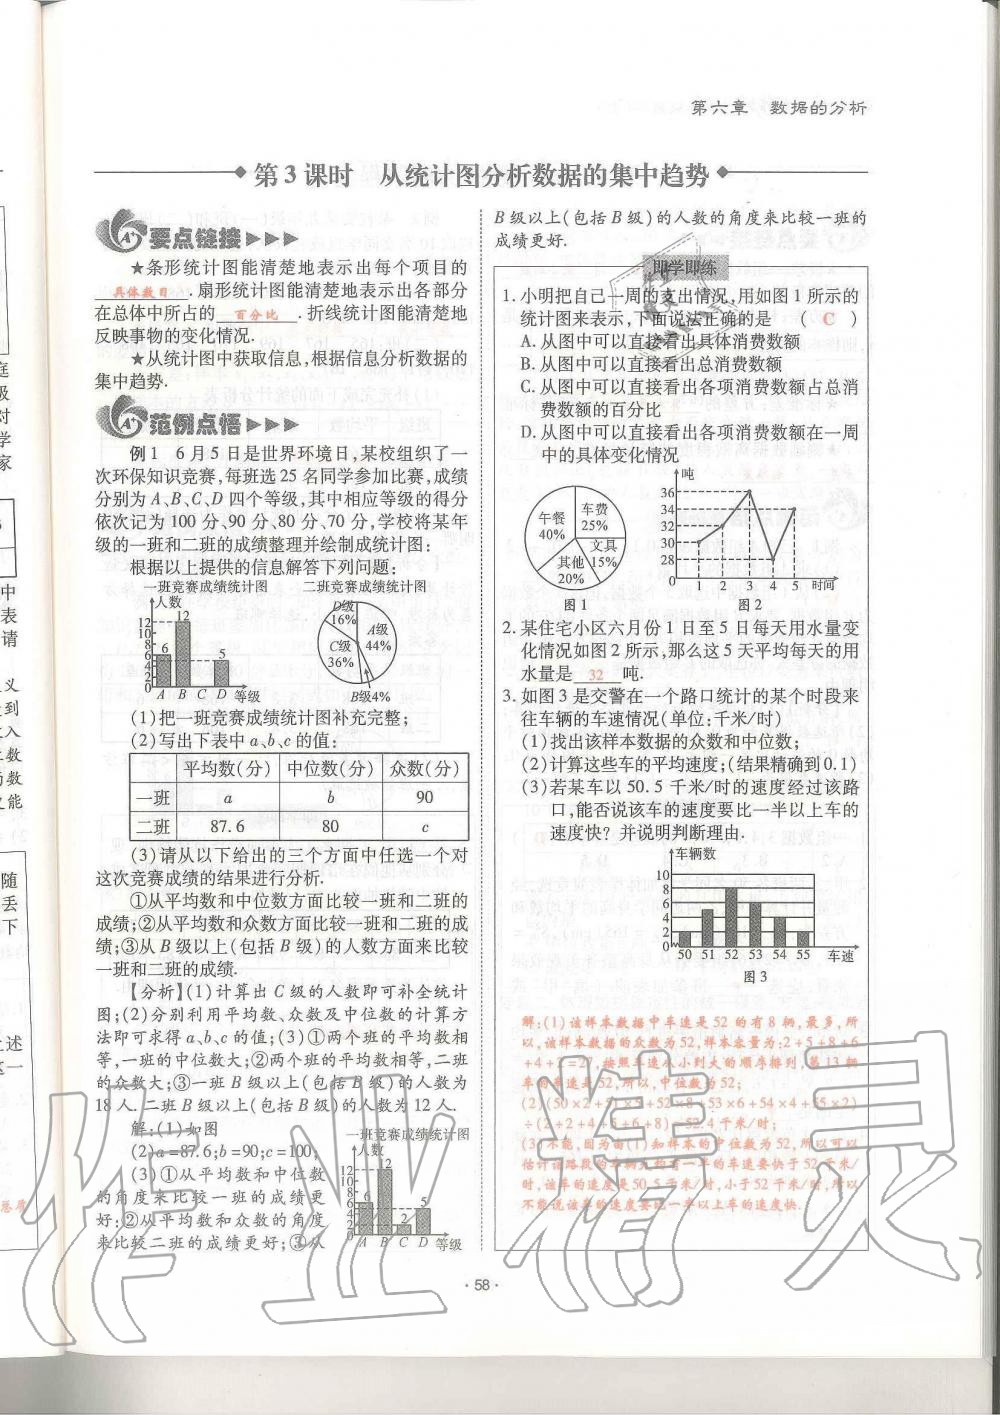 第六章 数据的分析
第3课时 从统计图分析数据的集中趋势
要点链接
★条形统计图能清楚地表示出每个项目的
具体数目.扇形统计图能清楚地表示出各部分
在总体中所占的 百分比 .折线统计图能清楚地
反映事物的变化情况.
★从统计图中获取信息,根据信息分析数据的
集中趋势.
范例点悟
例1 6月5日是世界环境日,某校组织了一
次环保知识竞赛,每班选25名同学参加比赛,成绩
分别为A、B、C、D四个等级,其中相应等级的得分
依次记为100分、90分、80分、70分,学校将某年
级的一班和二班的成绩整理并绘制成统计图:
根据以上提供的信息解答下列问题:
一班竞赛成绩统计图 二班竞赛成绩统计图
人数
12
10
8
6
4
2
0
6 12 5
A B C D 等级
D级
16%
A级
44%
C级
36%
B级4%
(1)把一班竞赛成绩统计图补充完整;
(2)写出下表中a、b、c的值:
平均数(分) 中位数(分) 众数(分)
一班 a b 90
二班 87.6 80 c
(3)请从以下给出的三个方面中任选一个对
这次竞赛成绩的结果进行分析.
①从平均数和中位数方面比较一班和二班的
成绩;②从平均数和众数方面比较一班和二班的成
绩;③从B级以上(包括B级)的人数方面来比较
一班和二班的成绩.
【分析】(1)计算出C级的人数即可补全统计
图;(2)分别利用平均数、众数及中位数的计算方
法即可求得a、b、c的值;(3)①两个班的平均数相
等,一班的中位数大;②两个班的平均数相等,二班
的众数大;③一班B级以上(包括B级)的人数为
18人.二班B级以上(包括B级)的人数为12人.
解:(1)如图
(2)a=87.6;b=90;c=100;
(3)①从平均数和中位数
的角度来比较一班的成绩更
好;②从平均数和众数的角度
来比较二班的成绩更好;③从
一班竞赛成绩统计图
人数
12
10
8
6
4
2
0
6 12 2 5
A B C D 等级
B级以上(包括B级)的人数的角度来比较一班的
成绩更好.
即学即练
1.小明把自己一周的支出情况,用如图1所示的
统计图来表示,下面说法正确的是 ( C )
A.从图中可以直接看出具体消费数额
B.从图中可以直接看出总消费数额
C.从图中可以直接看出各项消费数额占总消
费数额的百分比
D.从图中可以直接看出各项消费数额在一周
中的具体变化情况
午餐
40%
车费
25%
文具
15%
其他
20%
图1
吨
36
34
32
30
28
1 2 3 4 5 时间
图2
2.某住宅小区六月份1日至5日每天用水量变
化情况如图2所示,那么这5天平均每天的用
水量是 32 吨.
3.如图3是交警在一个路口统计的某个时段来
往车辆的车速情况(单位:千米/时)
(1)找出该样本数据的众数和中位数;
(2)计算这些车的平均速度;(结果精确到0.1)
(3)若某车以50.5千米/时的速度经过该路
口,能否说该车的速度要比一半以上车的
速度快?并说明判断理由.
车辆数
10
8
6
4
2
0
50 51 52 53 54 55 车速
图3
解:(1)该样本数据中车速是52的有8辆,最多,所
以,该样本数据的众数为52,样本容量为:2+5+8+6
+4+2=27,按照车速从小到大的顺序排列,第13辆
车的车速是52,所以,中位数为52;
(2)(50×2+51×5+52×8+53×6+54×4+55×2)
÷(2+2+4+5+6+8)=52.4千米/时;
(3)不能,因为由(1)知样本的中位数为52,所以可以
估计该路段的车辆大约有一半的车速要快于52千米/
时,该车的速度是50.5千米/时,小于52千米/时,所以
不能说该车的速度要比一半以上车的速度快.
·58·
作业精灵